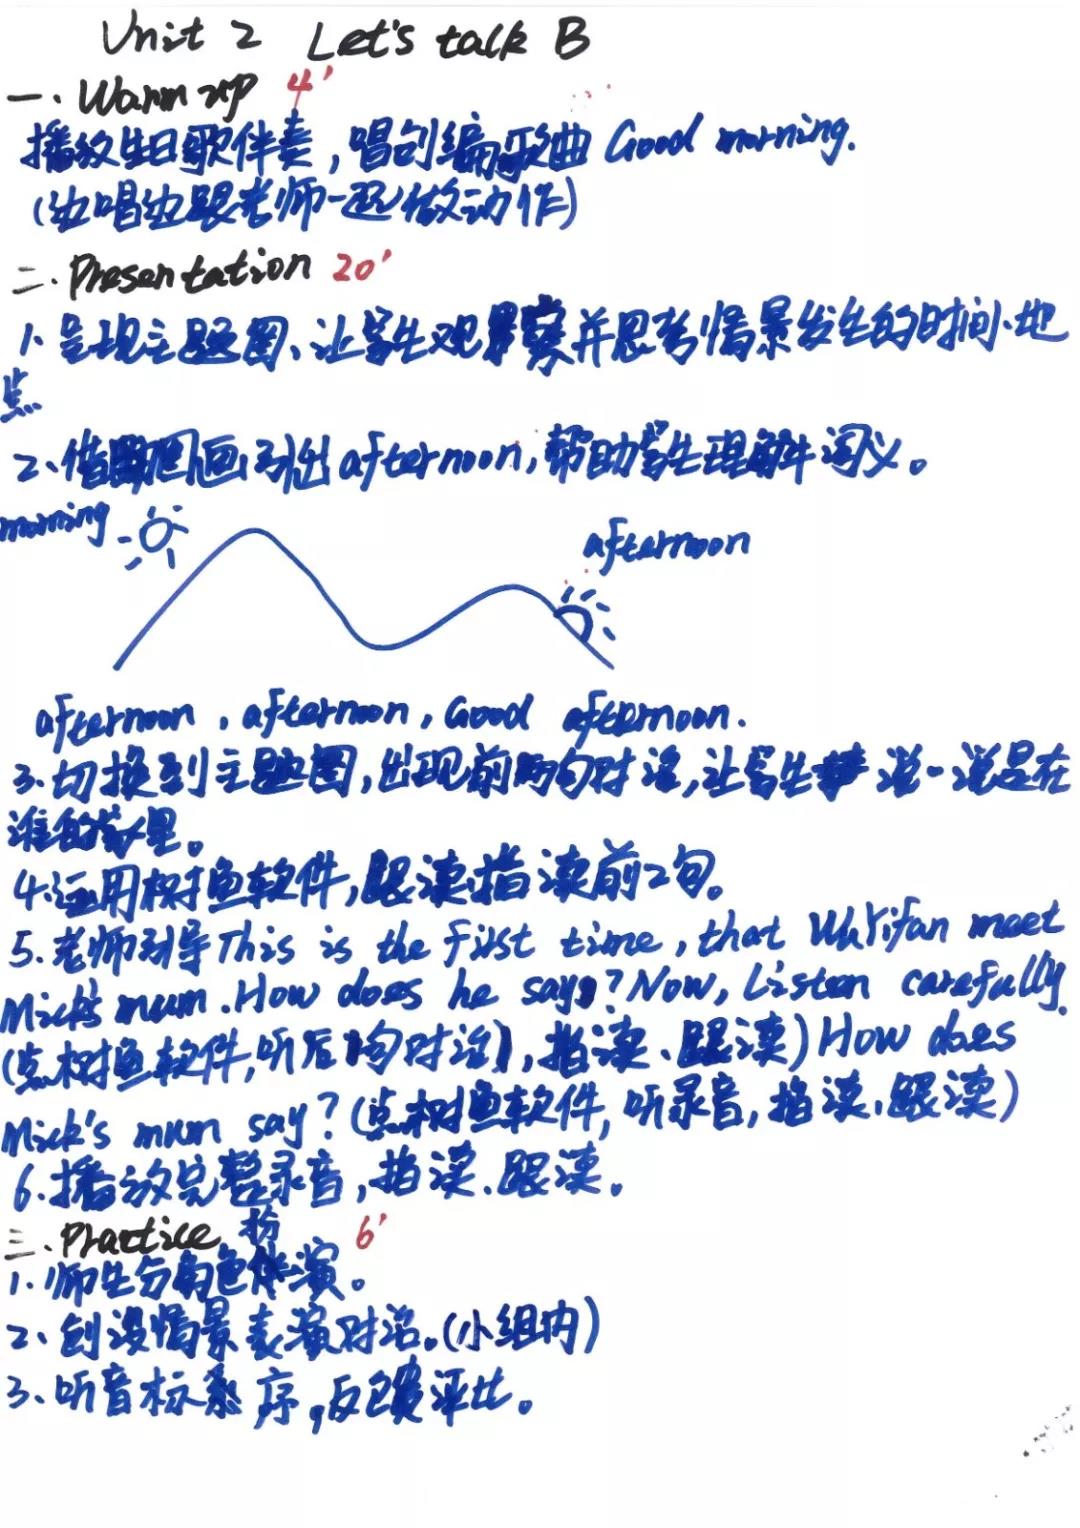 Unit 2 Let's talk B
一. Warm up 4'
播放生日歌伴奏,唱创编歌曲 Good morning.
(边唱边跟老师一起做动作)
二. Presentation 20'
1. 呈现主题图、让学生观察并思考情景发生的时间、地
点
2、借图画引出afternoon,帮助学生理解词义。
morning
afternoon
afternoon, afternoon, Good afternoon.
3.切换到主题图,出现前两句对话,让学生说一说是在
谁的家里。
4.运用树鱼软件,跟读指读前2句。
5.老师引导This is the first time, that Wu Yifan meet
Mick's mum. How does he say? Now, Listen carefully.
(点树鱼软件,听后1句对话),指读、跟读) How does
Mick's mum say? (点树鱼软件,听录音,指读、跟读)
6.播放完整录音,指读、跟读。
三. Practice 6'
1.师生分角色扮演。
2、创设情景表演对话。(小组内)
3、听音标序,反馈评比。